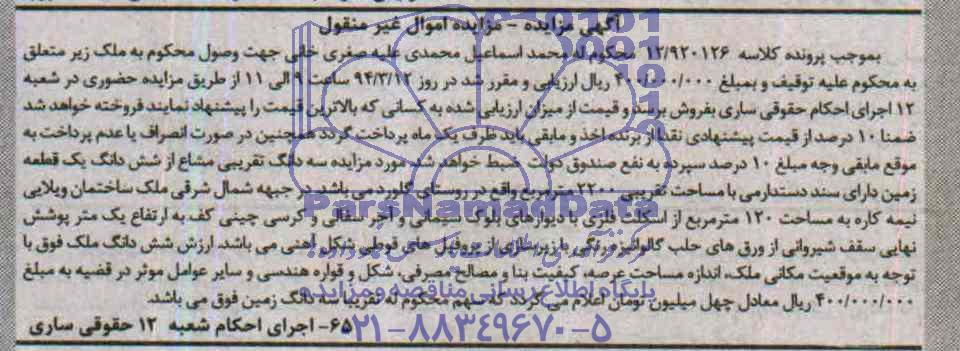 آگهی مزایده - مزایده اموال غیر منقول
بموجب پرونده کلاسه ۱۲/۹۲۰۱۲۶ محکوم له محمد اسماعیل محمدی علیه صغری خانی جهت وصول محکوم به ملک زیر متعلق
به محکوم علیه توقیف و بمبلغ ۴۰۰/۰۰۰/۰۰۰ ریال ارزیابی و مقرر شد در روز ۹۴/۳/۱۲ ساعت ۹ الی ۱۱ از طریق مزایده حضوری در شعبه
۱۲ اجرای احکام حقوقی ساری بفروش برسد و قیمت از میزان ارزیابی شده به کسانی که بالاترین قیمت را پیشنهاد نمایند فروخته خواهد شد
ضمنا ۱۰ درصد از قیمت پیشنهادی نقدا از برنده اخذ و مابقی باید ظرف یک ماه پرداخت گردد همچنین در صورت انصراف یا عدم پرداخت به
موقع مابقی وجه مبلغ ۱۰ درصد سپرده به نفع صندوق دولت ضبط خواهد شد. مورد مزایده سه دانگ تقریبی مشاع از شش دانگ یک قطعه
زمین دارای سند دستدارمی با مساحت تقریبی ۲۲۰۰ متر مربع واقع در روستای گلورد می باشد. در جبهه شمال شرقی ملک ساختمان ویلایی
نیمه کاره به مساحت ۱۲۰ مترمربع از اسکلت فلزی با دیوارهای بلوک سیمانی و آجر سفالی و کرسی چینی کف به ارتفاع یک متر پوشش
نهایی سقف شیروانی از ورق های حلب گالوانیزه رنگی با زیرسازی از پروفیل های قوطی شکل آهنی می باشد. ارزش شش دانگ ملک فوق با
توجه به موقعیت مکانی ملک، اندازه مساحت عرصه، کیفیت بنا و مصالح مصرفی، شکل و قواره هندسی و سایر عوامل موثر در قضیه به مبلغ
۴۰۰/۰۰۰/۰۰۰ ریال معادل چهل میلیون تومان اعلام می گردد که سهم محکوم له تقریبا سه دانگ زمین فوق می باشد.
۶۵- اجرای احکام شعبه ۱۲ حقوقی ساری
ParsNamadData
پایگاه اطلاع رسانی مناقصه و مزایده
۰۲۱-۸۸۳۴۹۶۷۰-۵